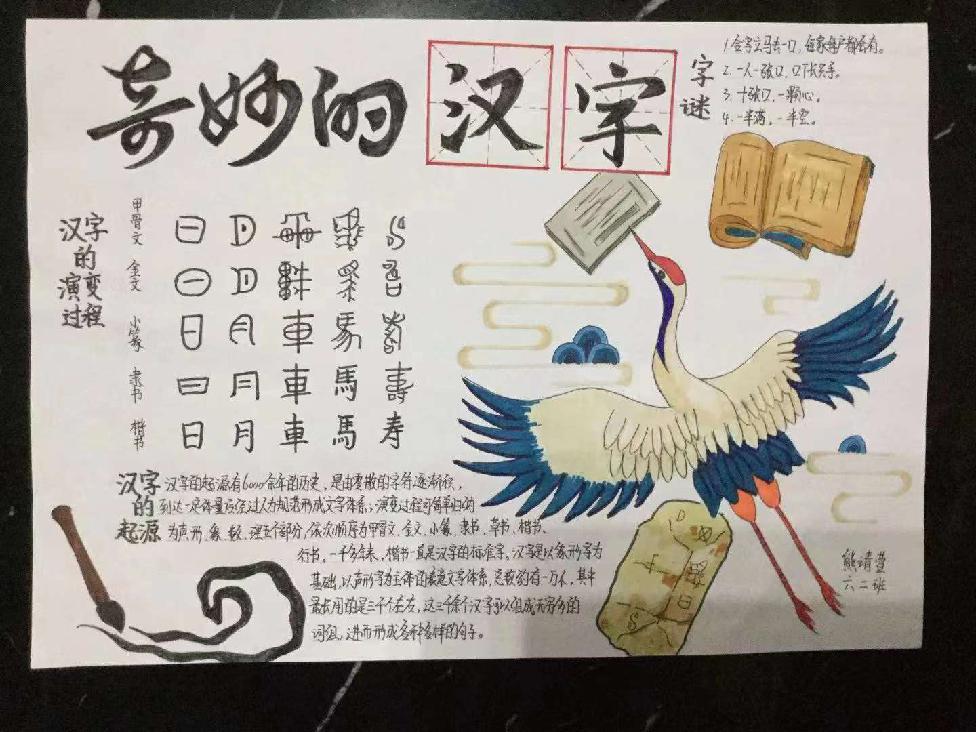 奇妙的汉字
字谜
1.会字立马去一口，每家每户都会有。
2.一人一张口，口下长只手。
3.十张口，一颗心。
4.一半满，一半空。
汉字的演变过程
甲骨文
金文
小篆
隶书
楷书
日 月 車 馬 壽
日 月 車 馬 寿
汉字的起源
汉字的起源有6000余年的历史，是由零散的字符逐渐积，
到达一定体量后经过人为规范形成文字体系，演变过程可简单归纳
为声、形、象、数、理五个部分，依次顺序为甲骨文、金文、小篆、隶书、草书、楷书、
行书。一千多年来，楷书一直是汉字的标准字。汉字是以象形字为
基础，以声形字为主体的表意文字体系，总数约有一万个，其中
最长用的是三千个左右，这三千余个汉字可以组成无穷多的
词汇，进而形成多种多样的句子。
熊靖萱
六二班